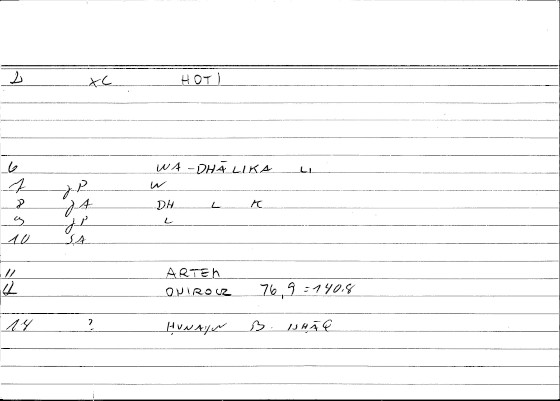 1 XC HOTI
6 WA-DHĀLIKA LI
7 JP W
8 JA DH L K
9 JP L
10 SA
11 ARTEM
12 ONIROCR 76,9 = 140.8
14 ? ḤUNAYN B. ISḤĀQ